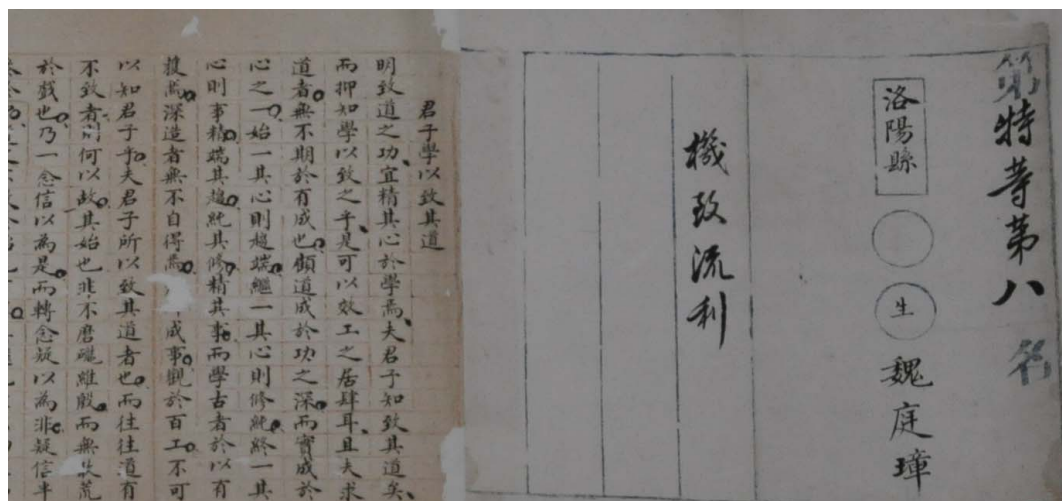 第特等第八名
洛陽縣 生 魏庭璋
機致流利
君子學以致其道
明致道之功宜精其心於學焉夫君子知致其道矣
而抑知學以致之乎是可以效工之居肆耳且夫求
道者無不期於有成也顧道成於功之深而實成於
心之一始一其心則趨端繼一其心則修純終一其
心則事精端其趨純其修精其事而學古者於以有
獲焉深造者無不自得焉 成事觀於百工不可
以知君子乎夫君子所以致其道者也而往往道有
不致者則何以故其始也非不磨礲維殷而無 荒
於戲也乃一念信以為是而轉念疑以為非疑信半